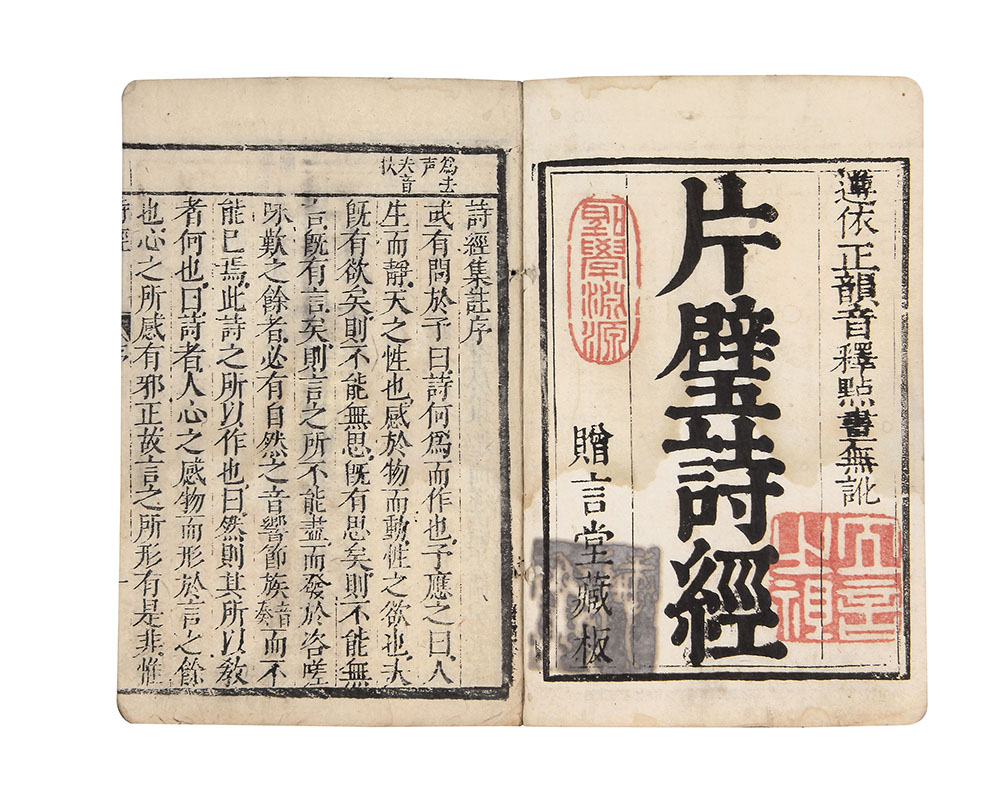 遵依正韻音釋點畫無訛
片璧詩經
贈言堂藏板
聖學淵源
五言
上祖
為去
声
夫音
扶
詩經集註序
或有問於予曰詩何為而作也予應之曰人
生而靜天之性也感於物而動性之欲也夫
既有欲矣則不能無思既有思矣則不能無
言既有言矣則言之所不能盡而發於咨嗟
咏歎之餘者必有自然之音響節族音奏而不
能已焉此詩之所以作也曰然則其所以教
者何也曰詩者人心之感物而形於言之餘
也心之所感有邪正故言之所形有是非惟
詩經 序 一